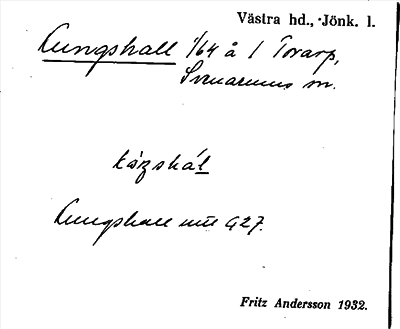 Västra hd., Jönk. l.
Kungshall 1/64 å 1 Torarp,
Svenarums sn.
kåŋshál
Kungshall mtl 927.
Fritz Andersson 1932.